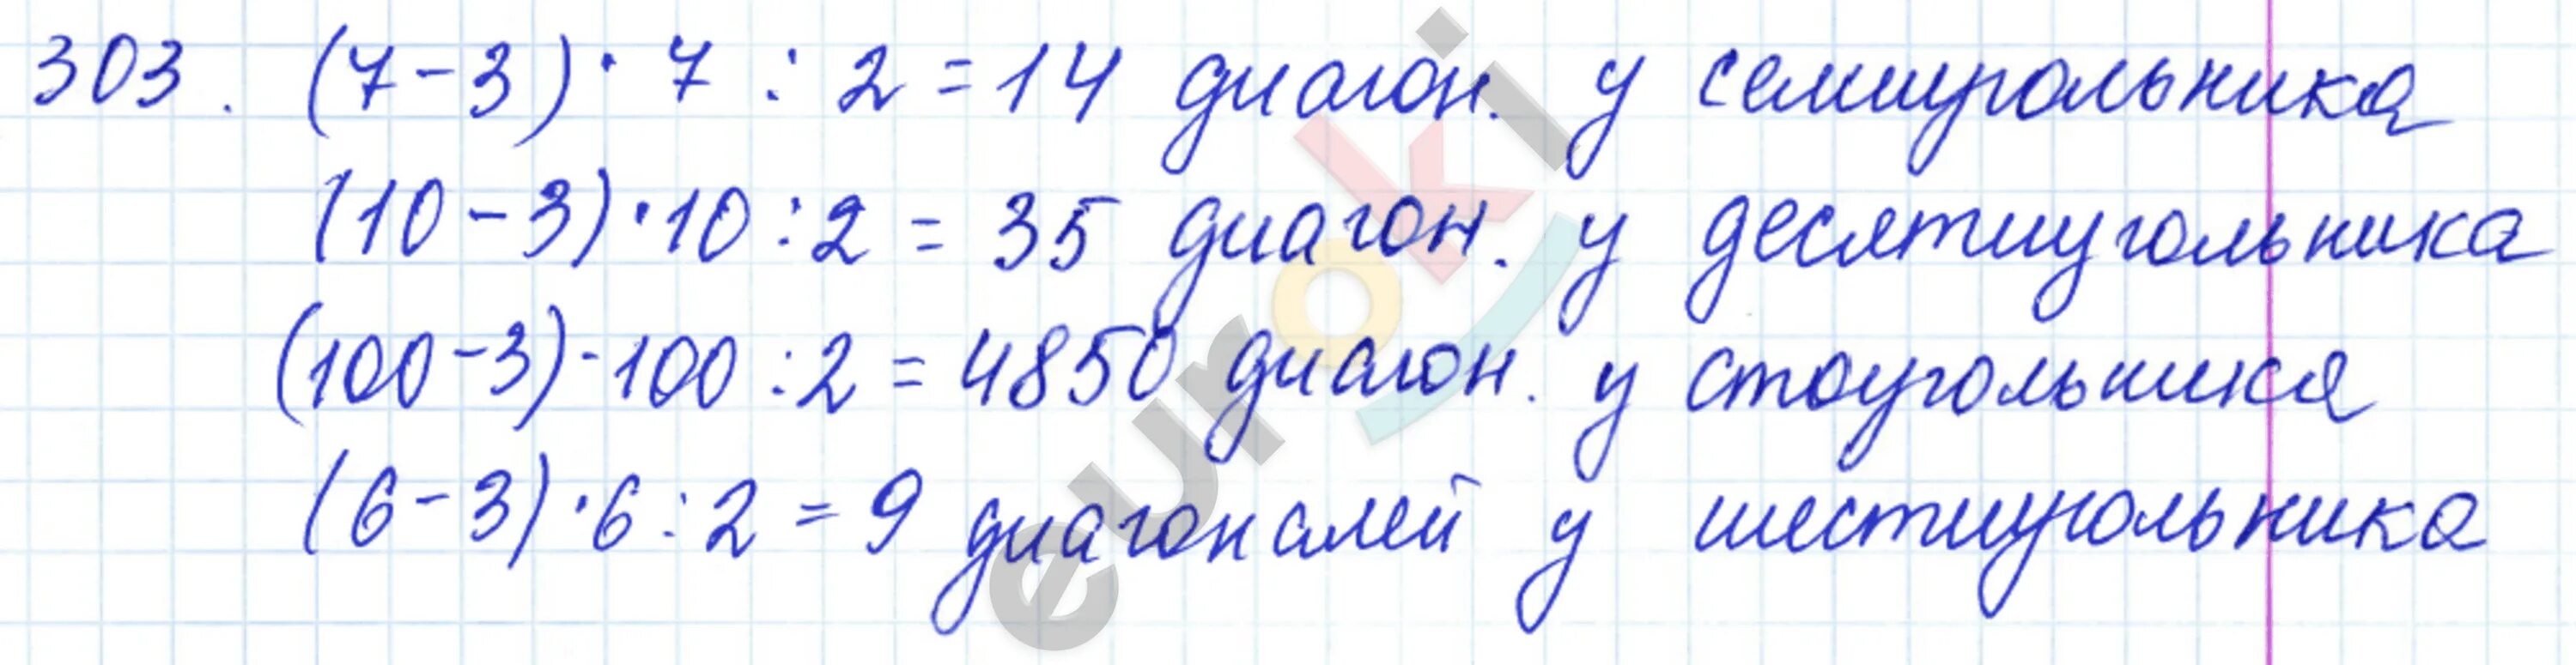 303. (7-3)·7:2=14 диагон. у семиугольника
(10-3)·10:2=35 диагон. у десятиугольника
(100-3)·100:2=4850 диагон. у стоугольника
(6-3)·6:2=9 диагоналей у шестиугольника
euroki